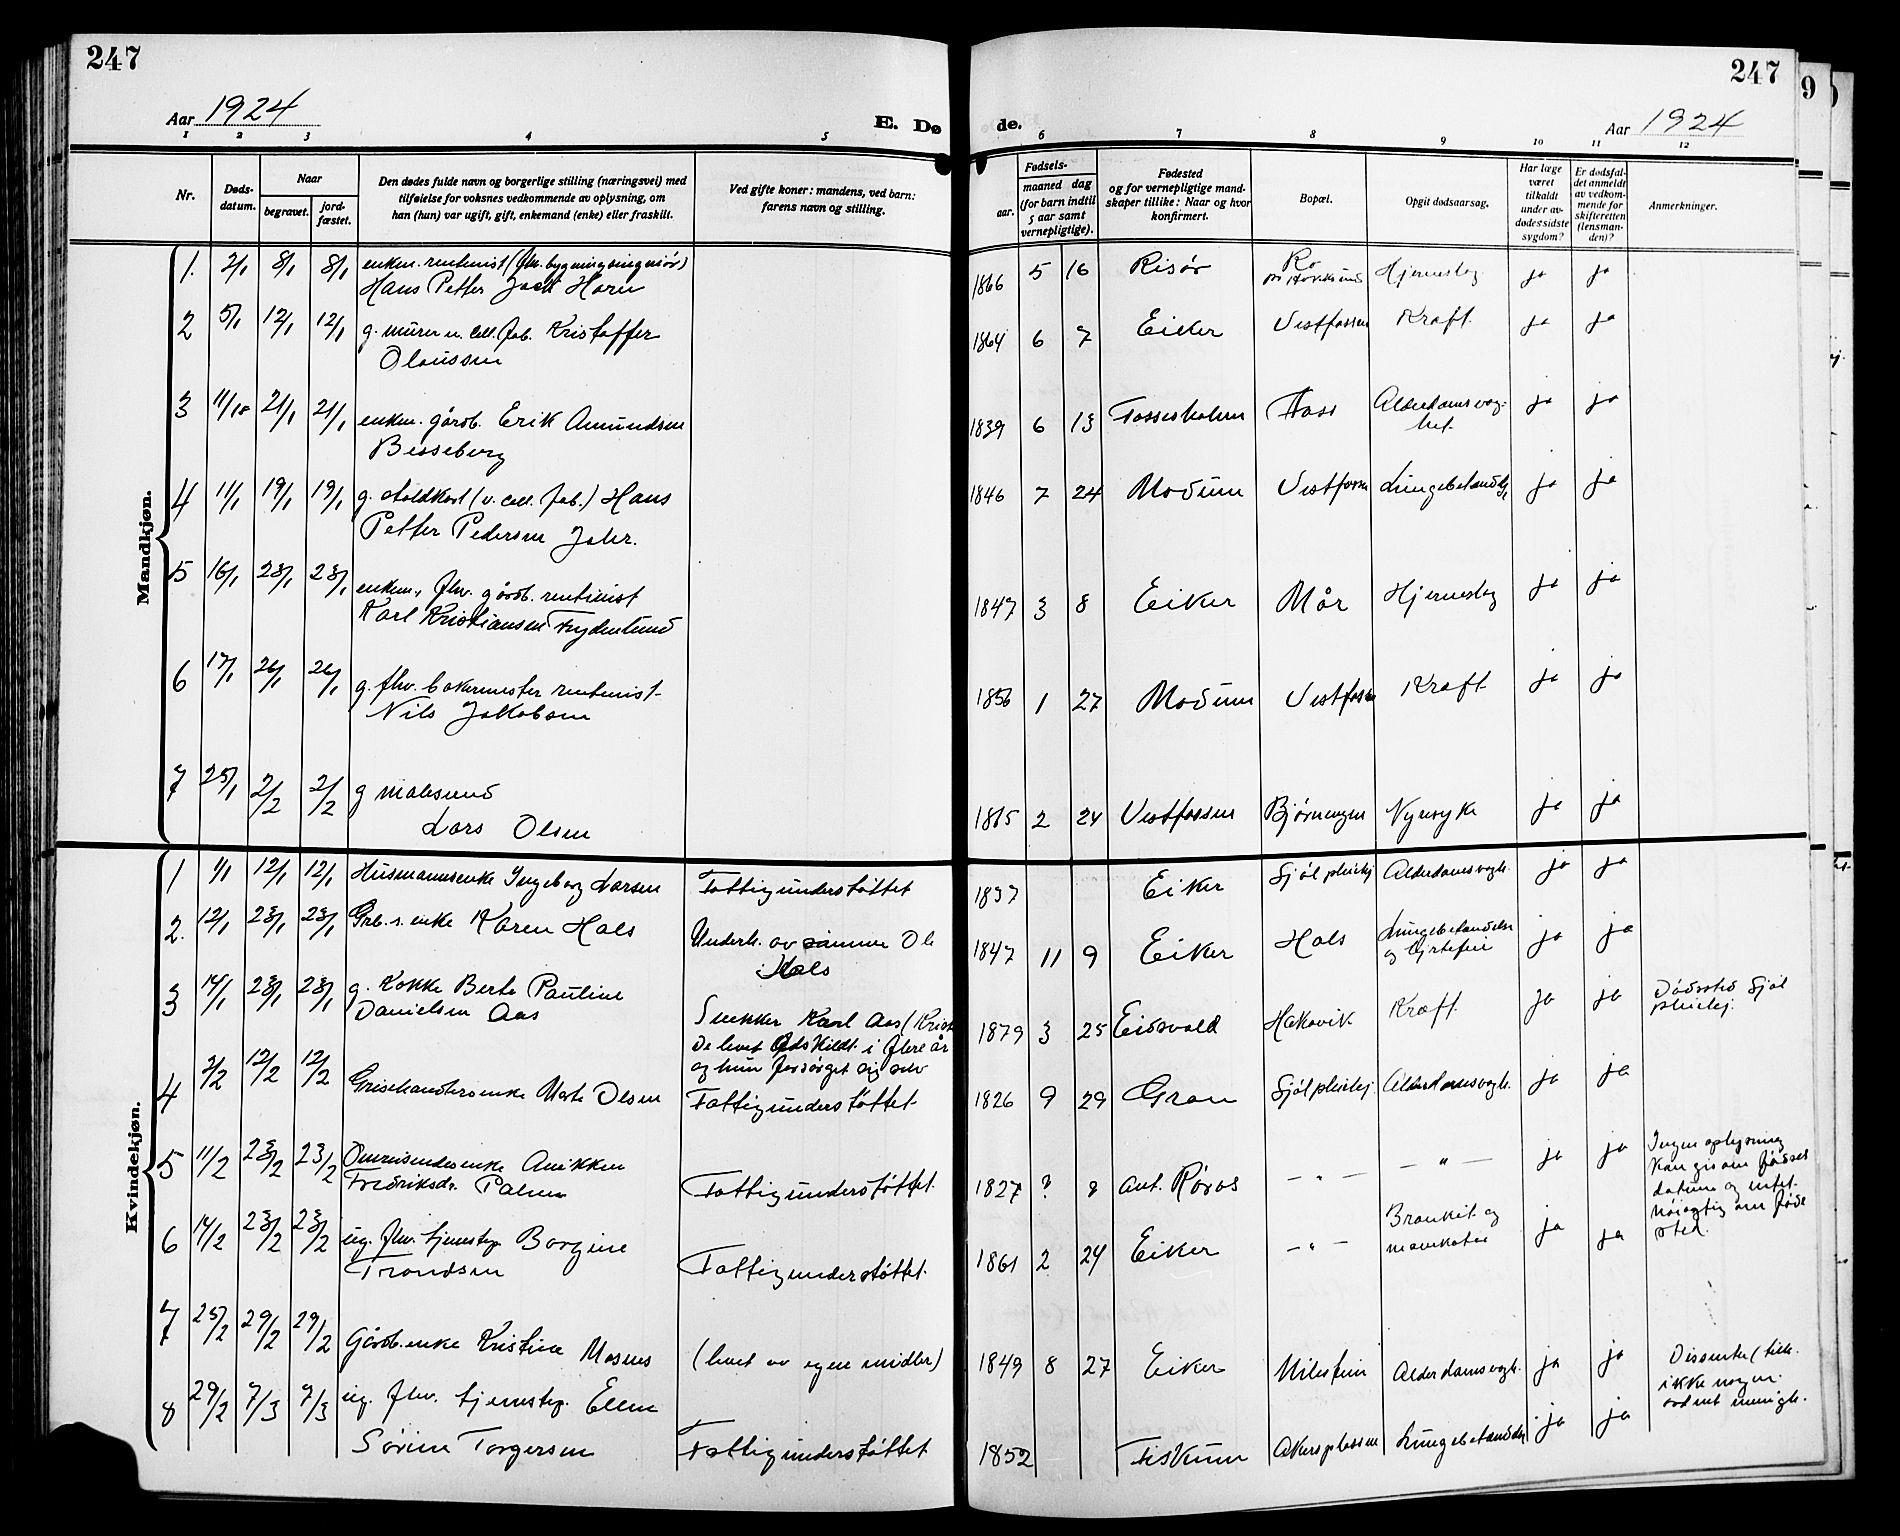 247
247
9
Aar 1924
E. Dø
de.
Aar 1924
1 2 3 4 5
6 7 8 9 10 11 12
Nr.
Døds-
datum.
Naar
begravet.
jord-
fæstet.
Den dødes fulde navn og borgerlige stilling (næringsvei) med
tilføielse for voksnes vedkommende av oplysning, om
han (hun) var ugift, gift, enkemand (enke) eller fraskilt.
Ved gifte koner: mandens, ved barn:
farens navn og stilling.
Fødsels-
aar.
maaned dag
(for barn indtil
5 aar samt
vernepligtige).
Fødested
og for vernepligtige mand-
skaper tillike: Naar og hvor
konfirmert.
Bopæl.
Opgit dødsaarsag.
Har læge
været
tilkaldt
under av-
dødes sidste
sygdom?
Er dødsfal-
det anmeldt
av vedkom-
mende for
skifteretten
(lensman-
den)?
Anmerkninger.
Mandkjøn.
1. 2/1 8/1 8/1 enkem. rentenist (fhv. bygningsingeniør)
Hans Petter Horn
1866 5 16 Risør Hjerneslag ja ja
2 5/1 12/1 12/1 g. murer v. cell. fab. Kristoffer
Olaussen
1864 6 7 Eiker Vestfossen Kræft ja ja
3 11/18 21/1 21/1 enkem. gårdb. Erik Amundsen
Besseberg
1839 6 13 Fossesholm Alderdomsvag-
het. ja ja
4 11/1 19/1 19/1 g. (v. cell. fab.) Hans
Petter Pedersen
1846 7 24 Modum Vestfossen Lungebetændels ja ja
5 16/1 23/1 23/1 enkem., fhv. gårdb. rentenist
Karl Kristiansen Frydenlund
1847 3 8 Eiker Mår Hjerneslag ja ja
6 17/1 26/1 26/1 g. fhv. bakermester rentenist
Nils Jakobsen
1856 1 27 Modum Vestfossen Kræft ja ja
7 25/1 2/2 2/2 g
Lars Olsen
1865 2 24 Vestfossen Nyresyke ja ja
Kvindekjøn.
1 1/1 12/1 12/1 Husmannsenke Ingeborg Larsen Fattigunderstøttet
1837 Eiker Sjøl pleiehj Alderdomsvagh. ja ja
2. 12/1 23/1 23/1 Grb.s. enke Karen Hals Underh. av sønnen Ole
Hals
1847 11 9 Eiker Hals Lungebetændelse
og hjertefeil ja ja
3 14/1 23/1 23/1 g. Kokke Berte Pauline
Danielsen Aas
Snekker Karl Aas (Krist
De levet adskildt i flere år
og hun forsørget sig selv
1879 3 25 Eidsvold Hakavik Kræft ja ja Dødssted Sjøl
pleiehj.
4 2/2 12/2 12/2 Grisehandlersenke Marte Olsen Fattigunderstøttet
1826 9 29 Gran Sjøl pleiehj. Alderdomsvagh. ja ja
5 11/2 23/2 23/2 Omreisendesenke Anikken
Fredriksdr. Palma
Fattigunderstøttet
1827 ? ? ant. Røros — „ — — „ — ja ja Ingen oplysning
kan gis om fødsels
datum og intet
nøiagtig om føde
sted.
6 14/2 23/2 23/2 ug. fhv. tjenestep. Borgine
Trondsen
Fattigunderstøttet
1861 2 24 Eiker — „ — Bronkit og
ja ja
7 25/2 29/2 29/2 Gårdb.enke Kristine Moenes (levet av egne midler)
1849 8 27 Eiker Alderdomsvagh. ja ja Dissenter (tilh.
ikke nogen
ordnet menigh.
8 29/2 7/3 7/3 ug. fhv. tjenestep. Ellen
Sørine Torgersen
Fattigunderstøttet
1852 Fiskum Akersplassen Lungebetændelse ja ja